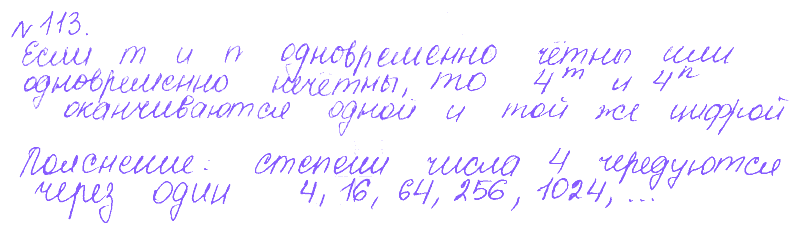 №113.
Если m и n одновременно чётны или
одновременно нечётны, то 4^m и 4^n
оканчиваются одной и той же цифрой
Пояснение: степени числа 4 чередуются
через один 4, 16, 64, 256, 1024, ...